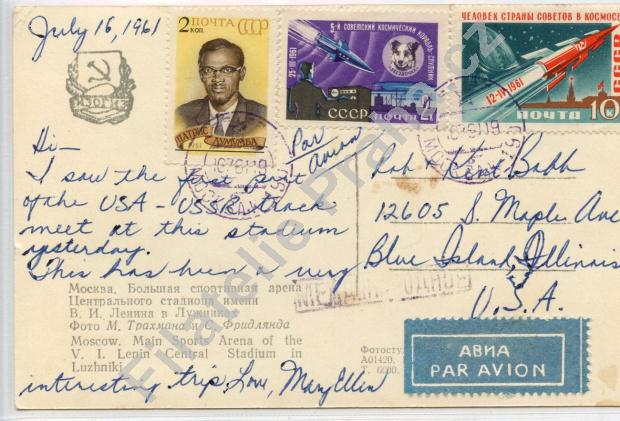 July 16, 1961
2 ПОЧТА СССР
КОП.
ПАТРИС ЛУМУМБА
1961
5-й СОВЕТСКИЙ КОСМИЧЕСКИЙ КОРАБЛЬ-СПУТНИК
25-III-1961
СССР ПОЧТА
ЧЕЛОВЕК СТРАНЫ СОВЕТОВ В КОСМОСЕ
12-IV-1961
СССР
ПОЧТА 10к
ИЗОГИЗ
МОСКВА
Par Avion
Hi —
I saw the first part
of the USA - USSR track
meet at this stadium
yesterday.
This has been a very
Москва. Большая спортивная арена
Центрального стадиона имени
В. И. Ленина в Лужниках
Фото М. Трахмана и С. Фридлянда
Moscow. Main Sports Arena of the
V. I. Lenin Central Stadium in
Luzhniki
interesting trip. Love, Mary Ellen
Rob + Kent Babb
12605 S. Maple Ave
Blue Island, Illinois
U.S.A.
МЕЖДУНАРОДНОЕ
Фотосту
А01420.
Т. 6000.
АВИА
PAR AVION
Filatelie Praha.cz